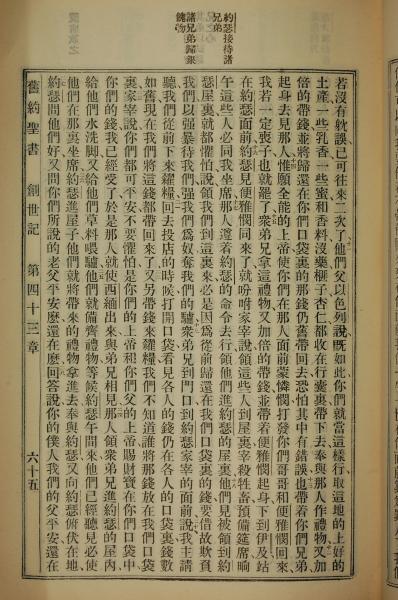 約瑟接待諸
兄弟
諸兄弟歸銀
餽物
若沒有躭誤已可往來二次了他們父以色列說既如此你們就當這樣行取這地的上好的
土產一些乳香一些蜜和香料沒藥榧子杏仁都收在行囊裏帶下去奉與那人作禮物又加
倍的帶錢並將歸還在你們口袋裏的那錢仍舊帶回去恐怕其中有錯誤也帶着你們兄弟
起身去見那人惟願全能的上帝使你們在那人面前蒙憐憫打發你們哥哥和便雅憫回來
我若一定喪子也就罷了衆弟兄拿這禮物又加倍的帶錢並帶着便雅憫起身下到伊及站
在約瑟面前約瑟見便雅憫同來了就吩咐家宰說領這些人到屋裏宰殺牲畜預備筵席晌
午這些人必同我坐席那人遵着約瑟的命令去行領他們進約瑟的屋裏他們見被領到約
瑟屋裏就都懼怕說領我們到這裏來必是因爲從前歸還在我們口袋裏的錢要借故欺負
我們以強暴待我們强我們爲奴奪我們的驢衆弟兄到門口到約瑟家宰的面前說我主請
聽我們從前下來糴糧回去投店的時候打開口袋看見各人的錢仍在各人的口袋裏錢數
如舊現在我們將這錢都帶回來了又另帶錢來糴糧我們不知道誰將那錢放在我們口袋
裏家宰說你們都可平安不要懼怕是你們的上帝和你們父的上帝賜財寶在你們口袋中
你們的錢我已經受了於是那人就使西緬出來與弟兄相見那人領衆弟兄進約瑟的屋內
給他們水洗脚又給他們草料喂驢他們就備齊禮物等候約瑟午間來他們已經聽見必使
他們在那裏坐席約瑟進屋子他們就將帶來的禮物拿進去奉與約瑟又向約瑟俯伏在地
約瑟問他們好又問你們所說的老父平安麽還在麽回答說你的僕人我們的父平安還在
舊約聖書 創世記 第四十三章 六十五